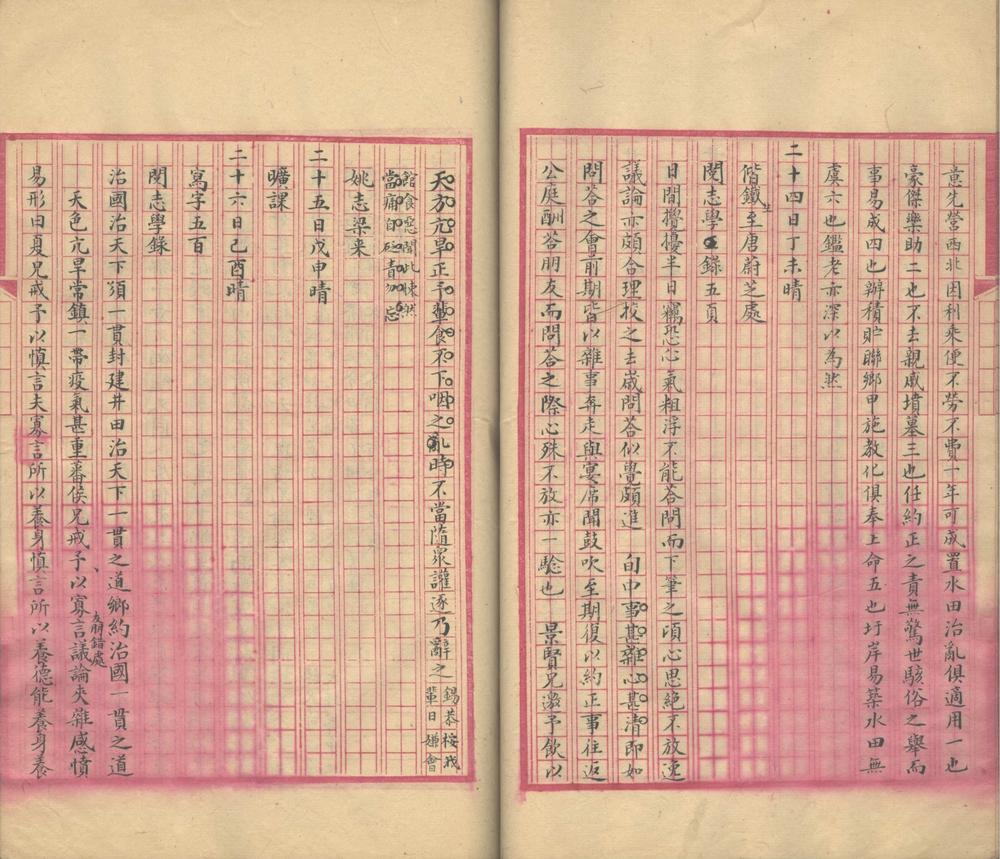 意先營西北因利乘便不勞不費一年可成置水田治亂俱適用一也
豪傑樂助二也不去親戚墳墓三也任約正之責無驚世駭俗之舉而
事易成四也辦積貯聯鄉甲施教化俱奉上命五也圩岸易築水田無
虞六也鑑老亦深以為然
二十四日丁未晴
偕鐵生至唐蔚芝處
閱志學錄五頁
日間擾擾半日竊恐心氣粗浮不能荅問而下筆之頃心思絕不放逸
議論亦頗合理挍之去歲問荅似覺頗進 旬中事甚雜心甚清即如
問荅之會前期皆以雜事奔走與宴席聞鼓吹至期復以約正事往返
公庭酬荅朋友而問荅之際心殊不放亦一驗也 景賢兄邀予飲以
天方亢旱正予輩食不下咽之亂時不當隨眾讙逐乃辭之
錫恭桉我
輩日嫌會
館食惡聞此悚然
當痛自刻責勿忘
姚志梁来
二十五日戊申晴
曠課
二十六日己酉晴
寫字五百
閱志學錄
治國治天下須一貫封建井田治天下一貫之道鄉約治國一貫之道
天色亢旱常鎮一帶疫氣甚重蕃侯兄戒予以寡言議論夾雜感憤
友朋錯處
易形曰夏兄戒予以慎言夫寡言所以養身慎言所以養德能養身養